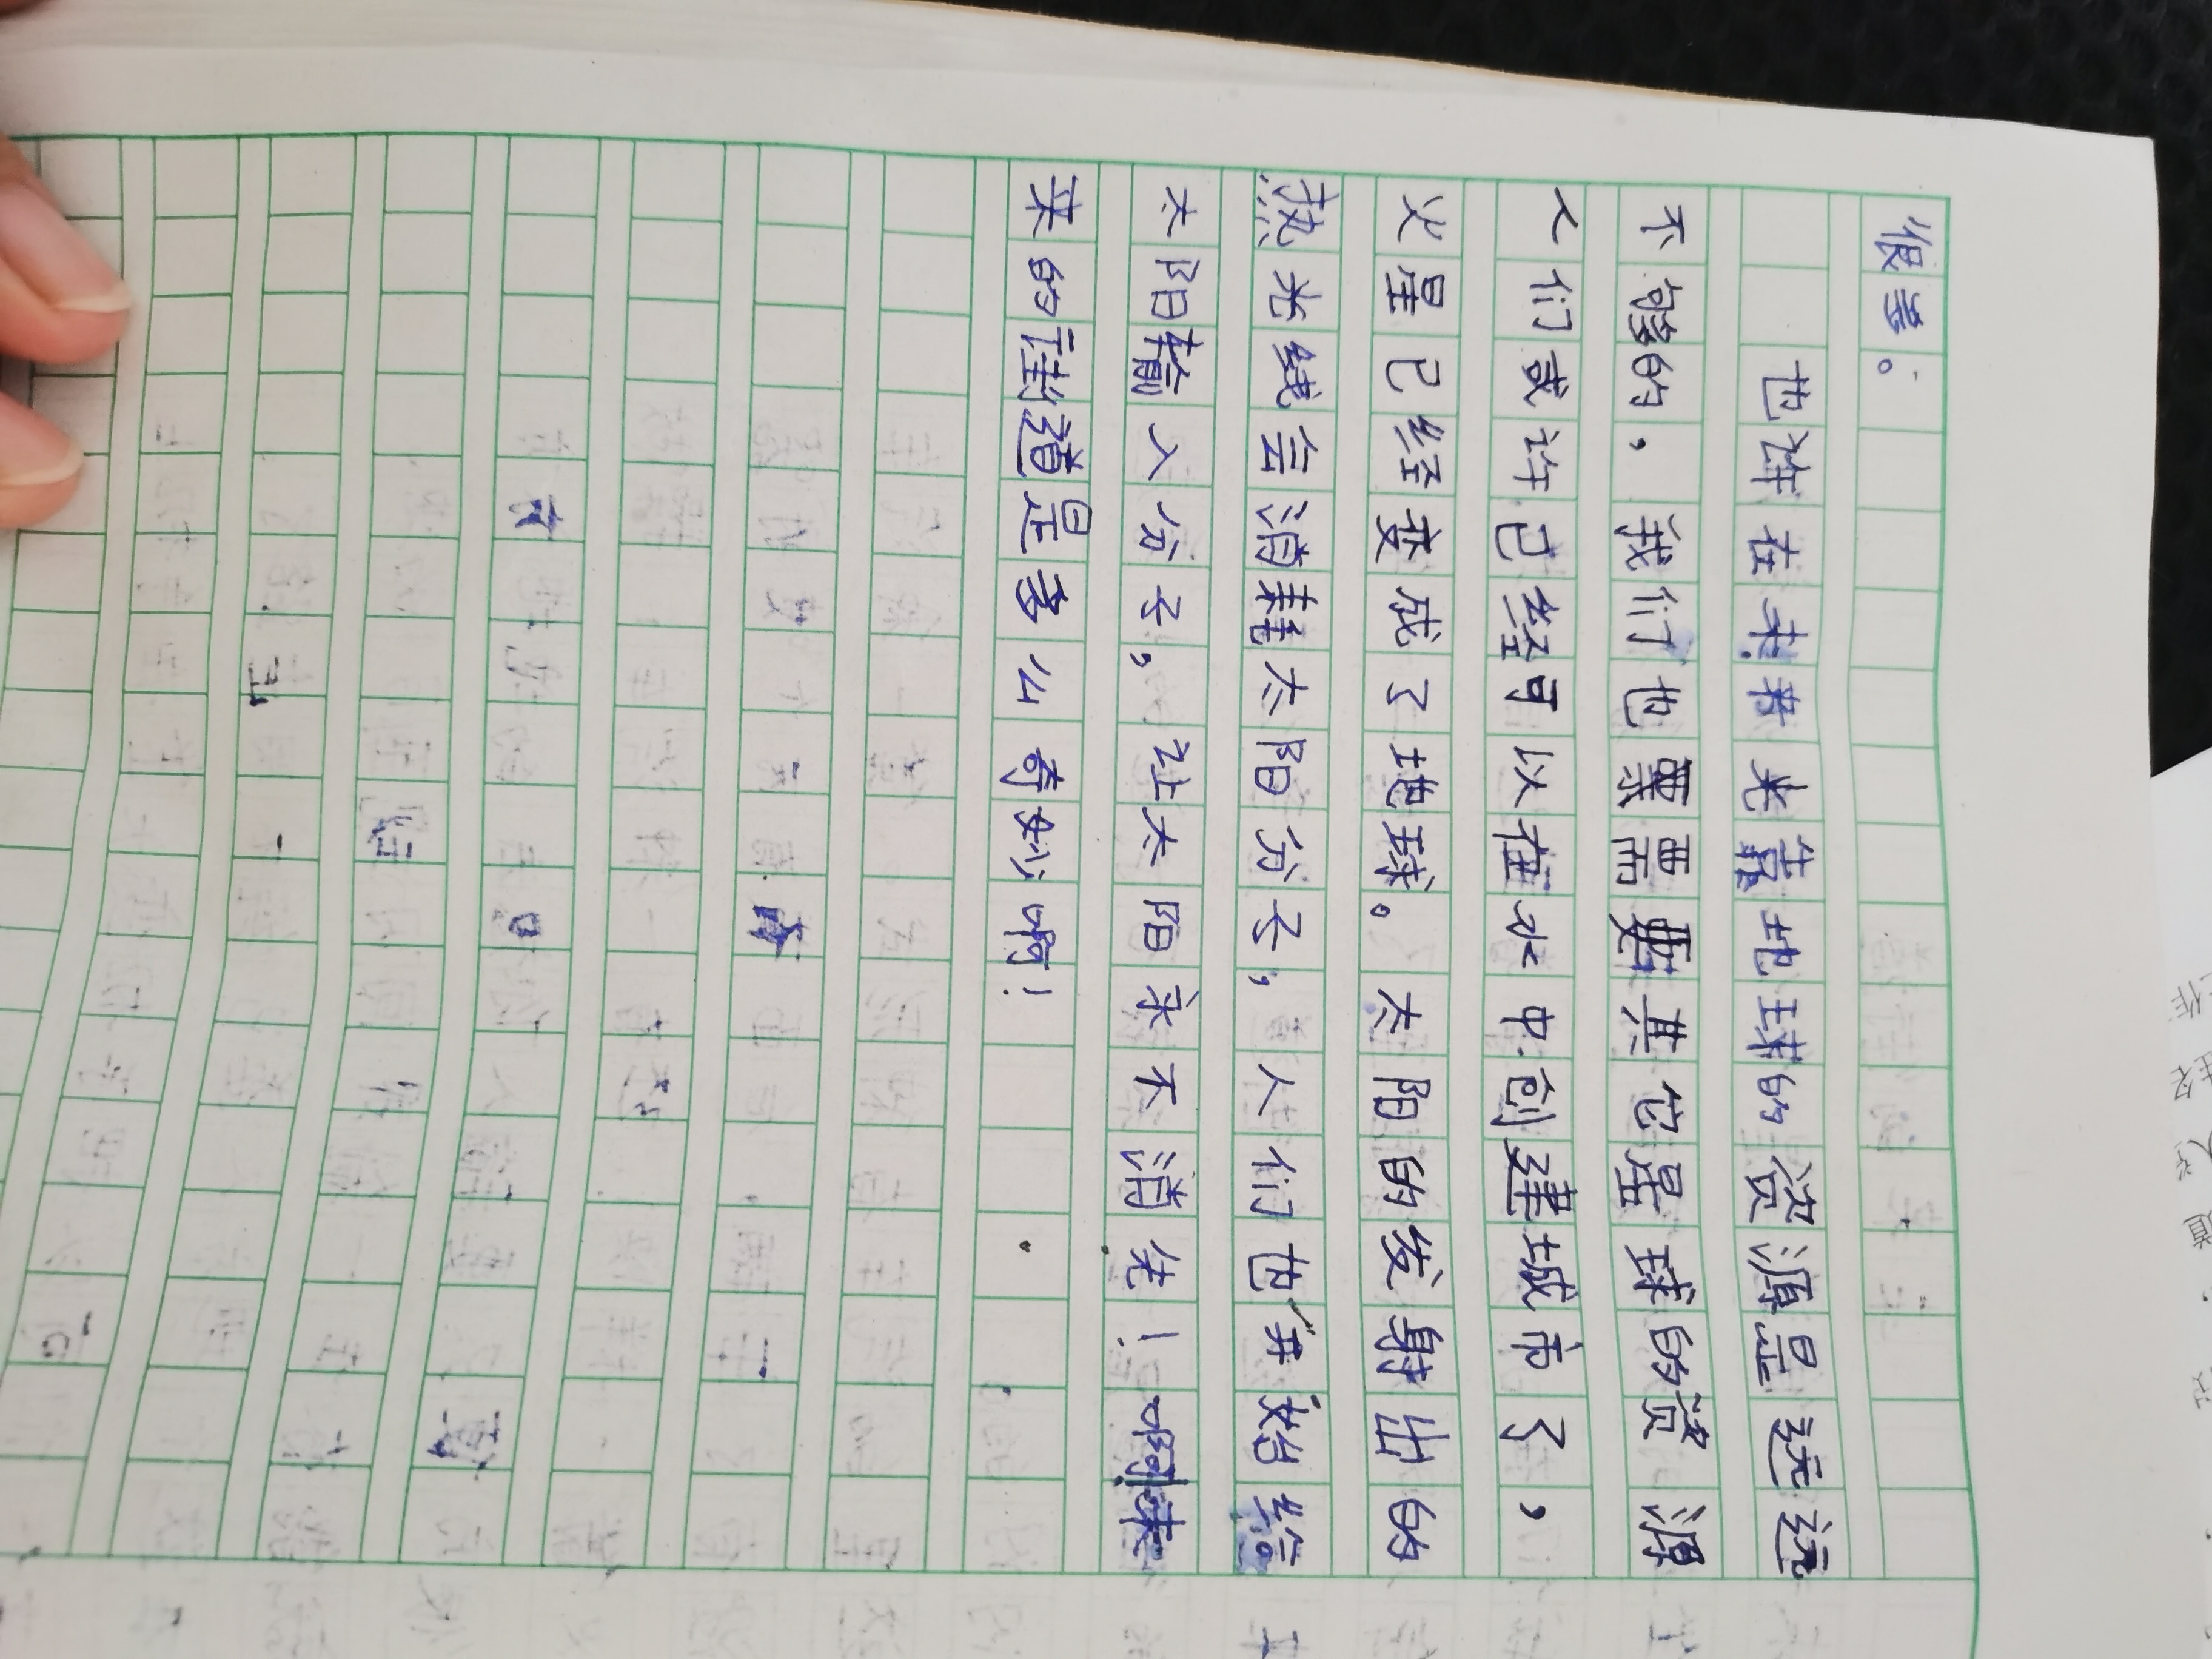 很多。
也许在未来光靠地球的资源是远远
不够的，我们也需要其它星球的资源
人们或许已经可以在水中创建城市了，
火星已经变成了地球。太阳的发射出的
热光线会消耗太阳分子，人们也开始给
太阳输入分子，让太阳永不消失！啊未
来的隧道是多么奇妙啊！